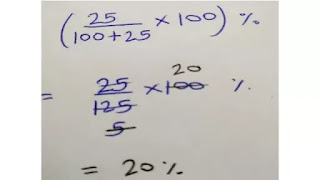 (25/100+25 × 100) %
20
= 25/125 × 100 %
5
= 20%